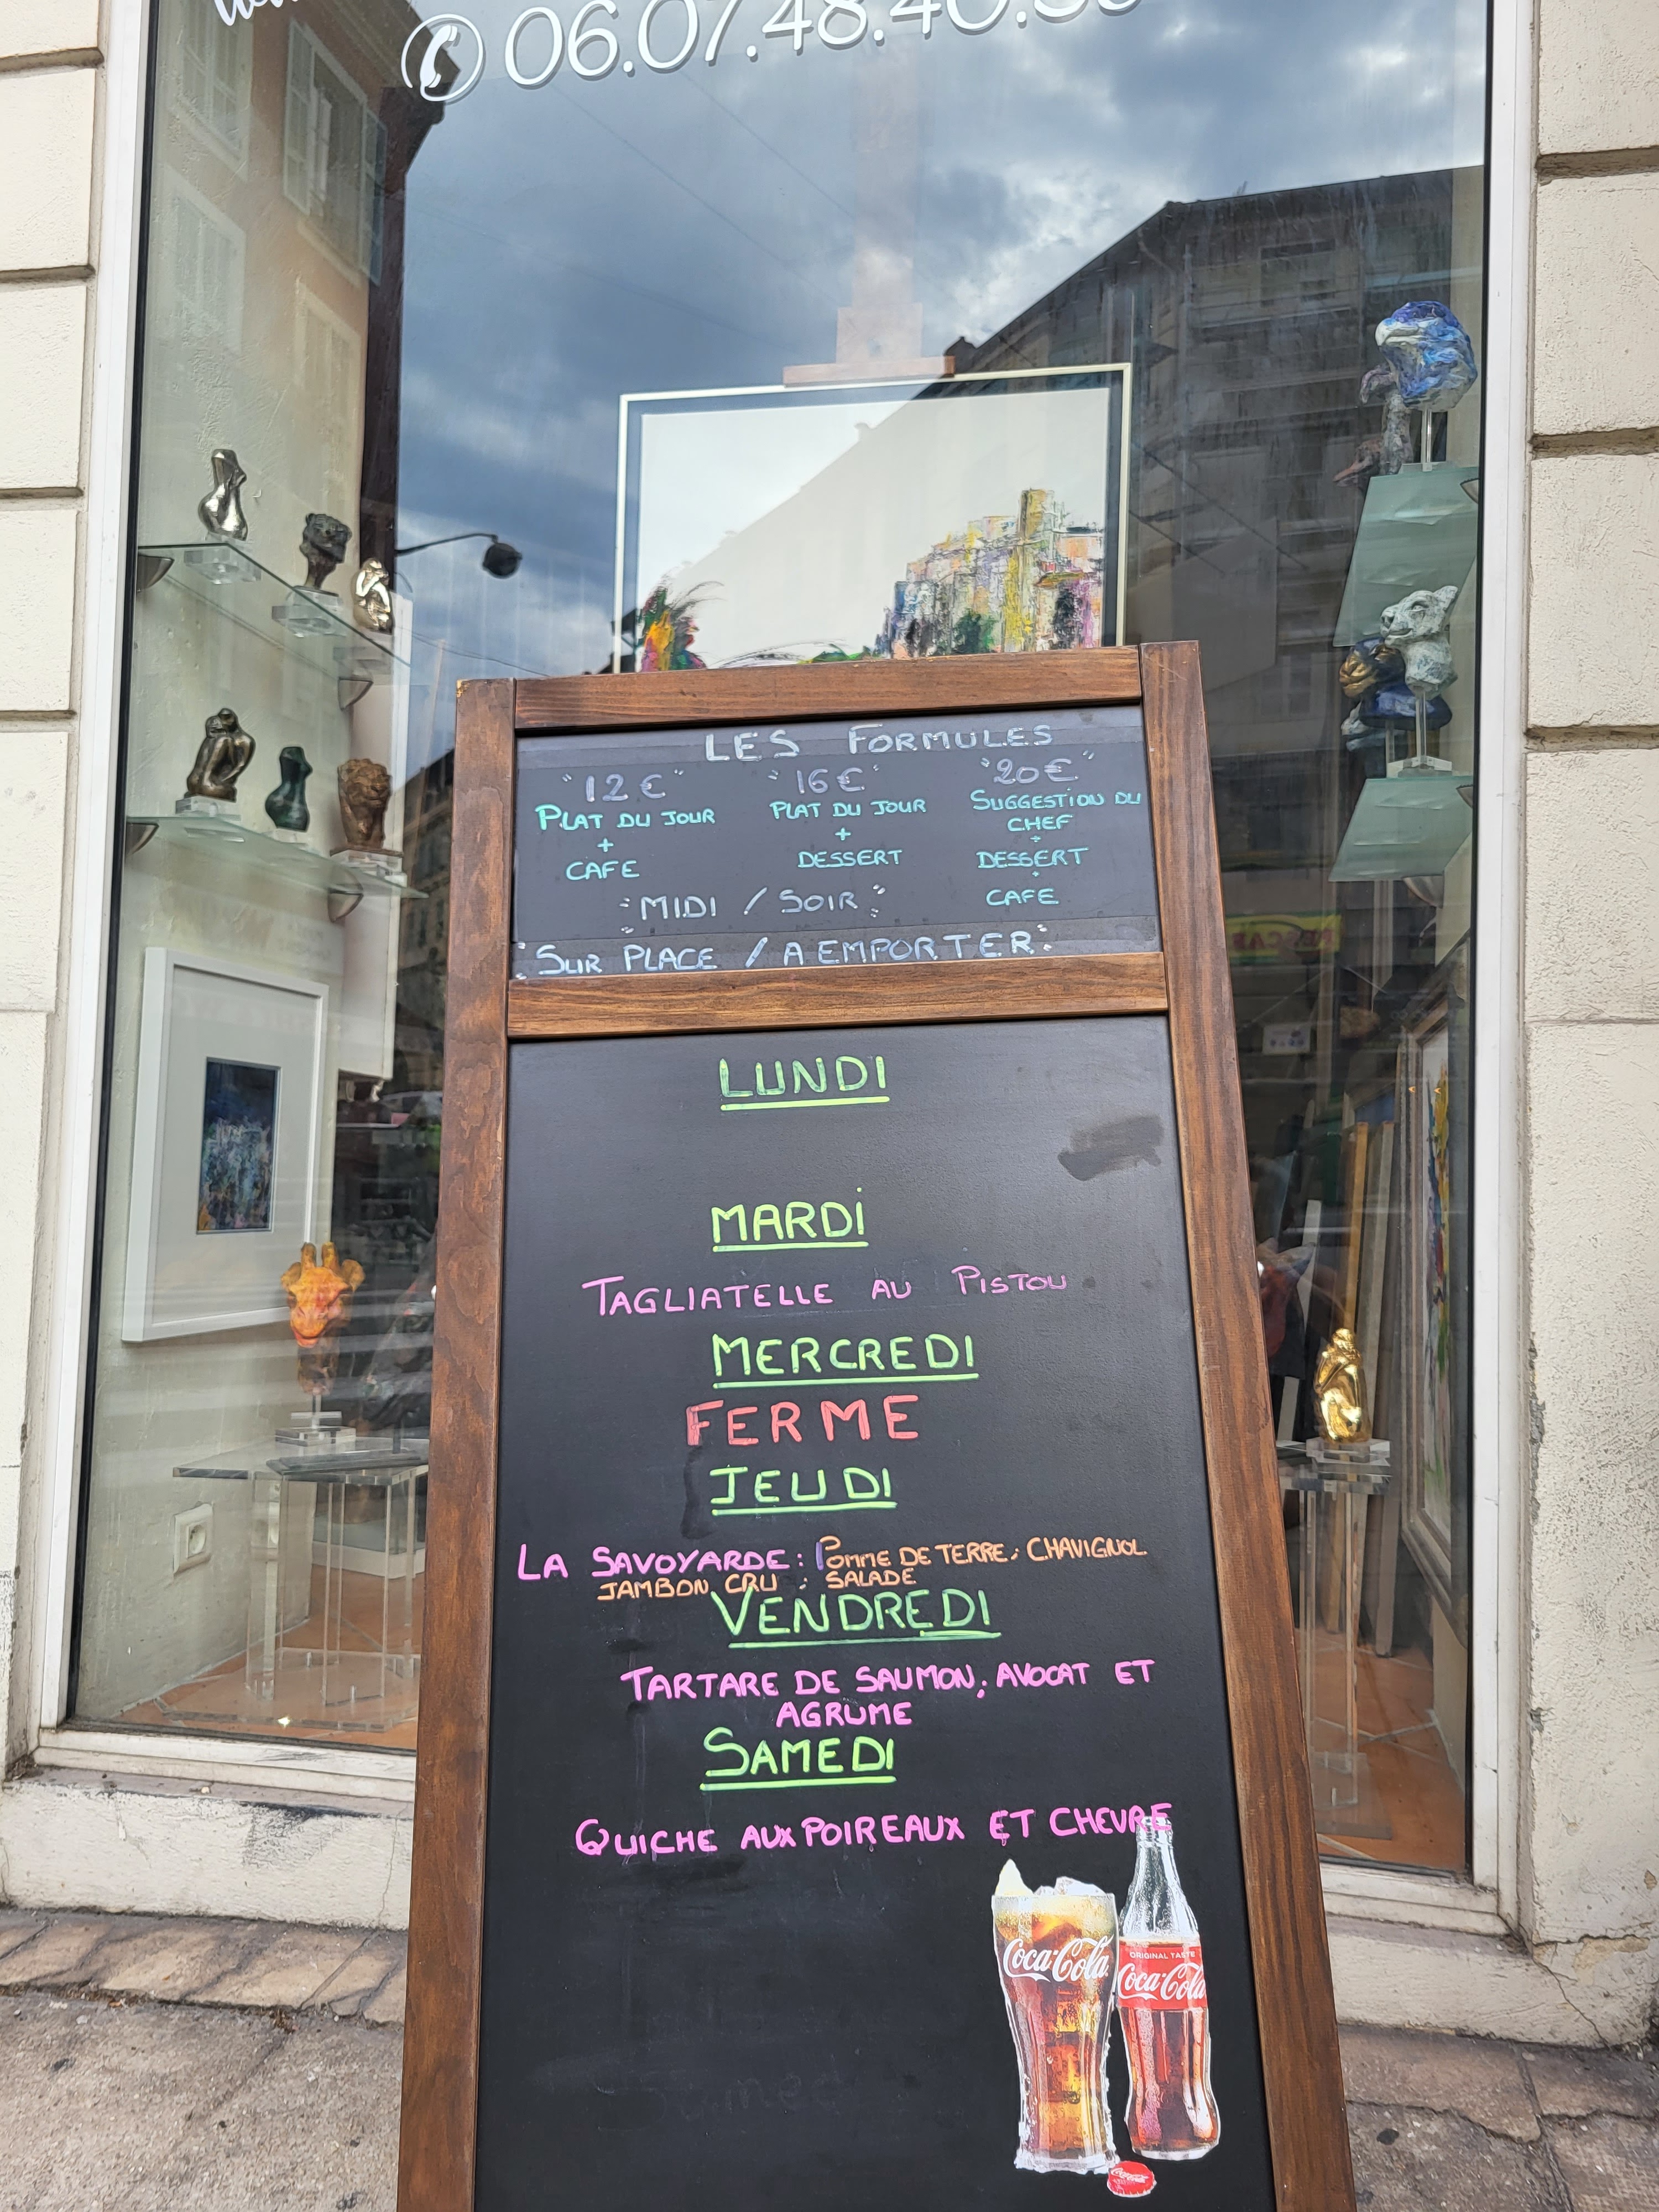 06.07.48.40.
LES FORMULES
"12€" "16€" "20€"
PLAT DU JOUR
+
CAFE
PLAT DU JOUR
+
DESSERT
SUGGESTION DU
CHEF
+
DESSERT
+
CAFE
"MIDI / SOIR"
"SUR PLACE / A EMPORTER"
LUNDI
MARDI
TAGLIATELLE AU PISTOU
MERCREDI
FERME
JEUDI
LA SAVOYARDE: POMME DE TERRE; CHAVIGNOL
JAMBON CRU ; SALADE
VENDREDI
TARTARE DE SAUMON; AVOCAT ET
AGRUME
SAMEDI
QUICHE AUX POIREAUX ET CHEVRE
Coca-Cola
ORIGINAL TASTE
Coca-Cola
Coca-Cola